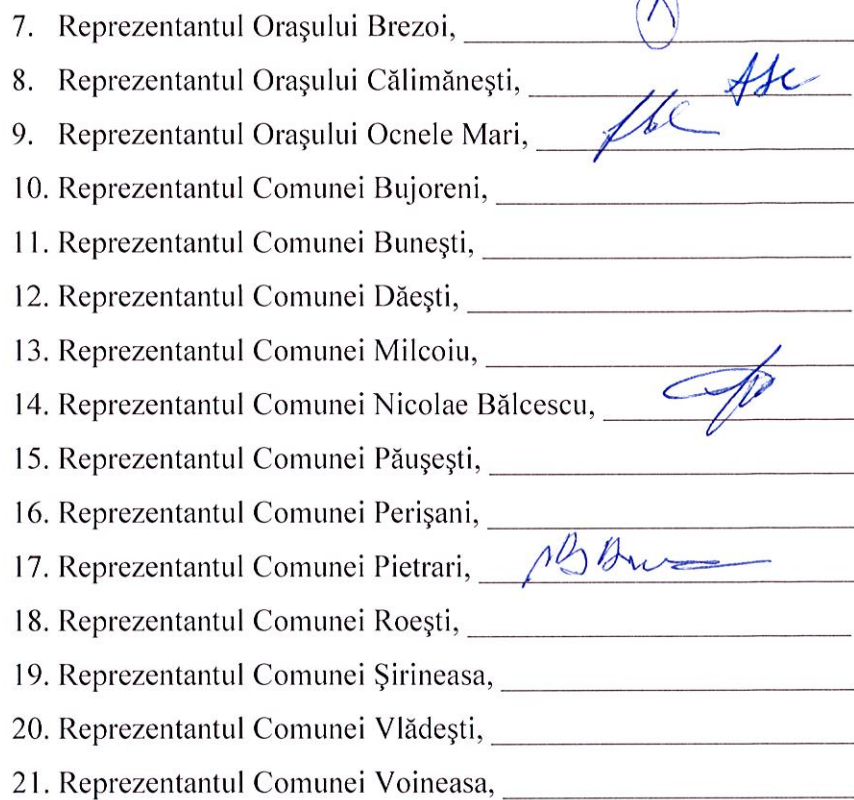 7. Reprezentantul Oraşului Brezoi,
8. Reprezentantul Oraşului Călimăneşti,
9. Reprezentantul Oraşului Ocnele Mari,
10. Reprezentantul Comunei Bujoreni,
11. Reprezentantul Comunei Buneşti,
12. Reprezentantul Comunei Dăeşti,
13. Reprezentantul Comunei Milcoiu,
14. Reprezentantul Comunei Nicolae Bălcescu,
15. Reprezentantul Comunei Păuşeşti,
16. Reprezentantul Comunei Perişani,
17. Reprezentantul Comunei Pietrari,
18. Reprezentantul Comunei Roeşti,
19. Reprezentantul Comunei Şirineasa,
20. Reprezentantul Comunei Vlădeşti,
21. Reprezentantul Comunei Voineasa,